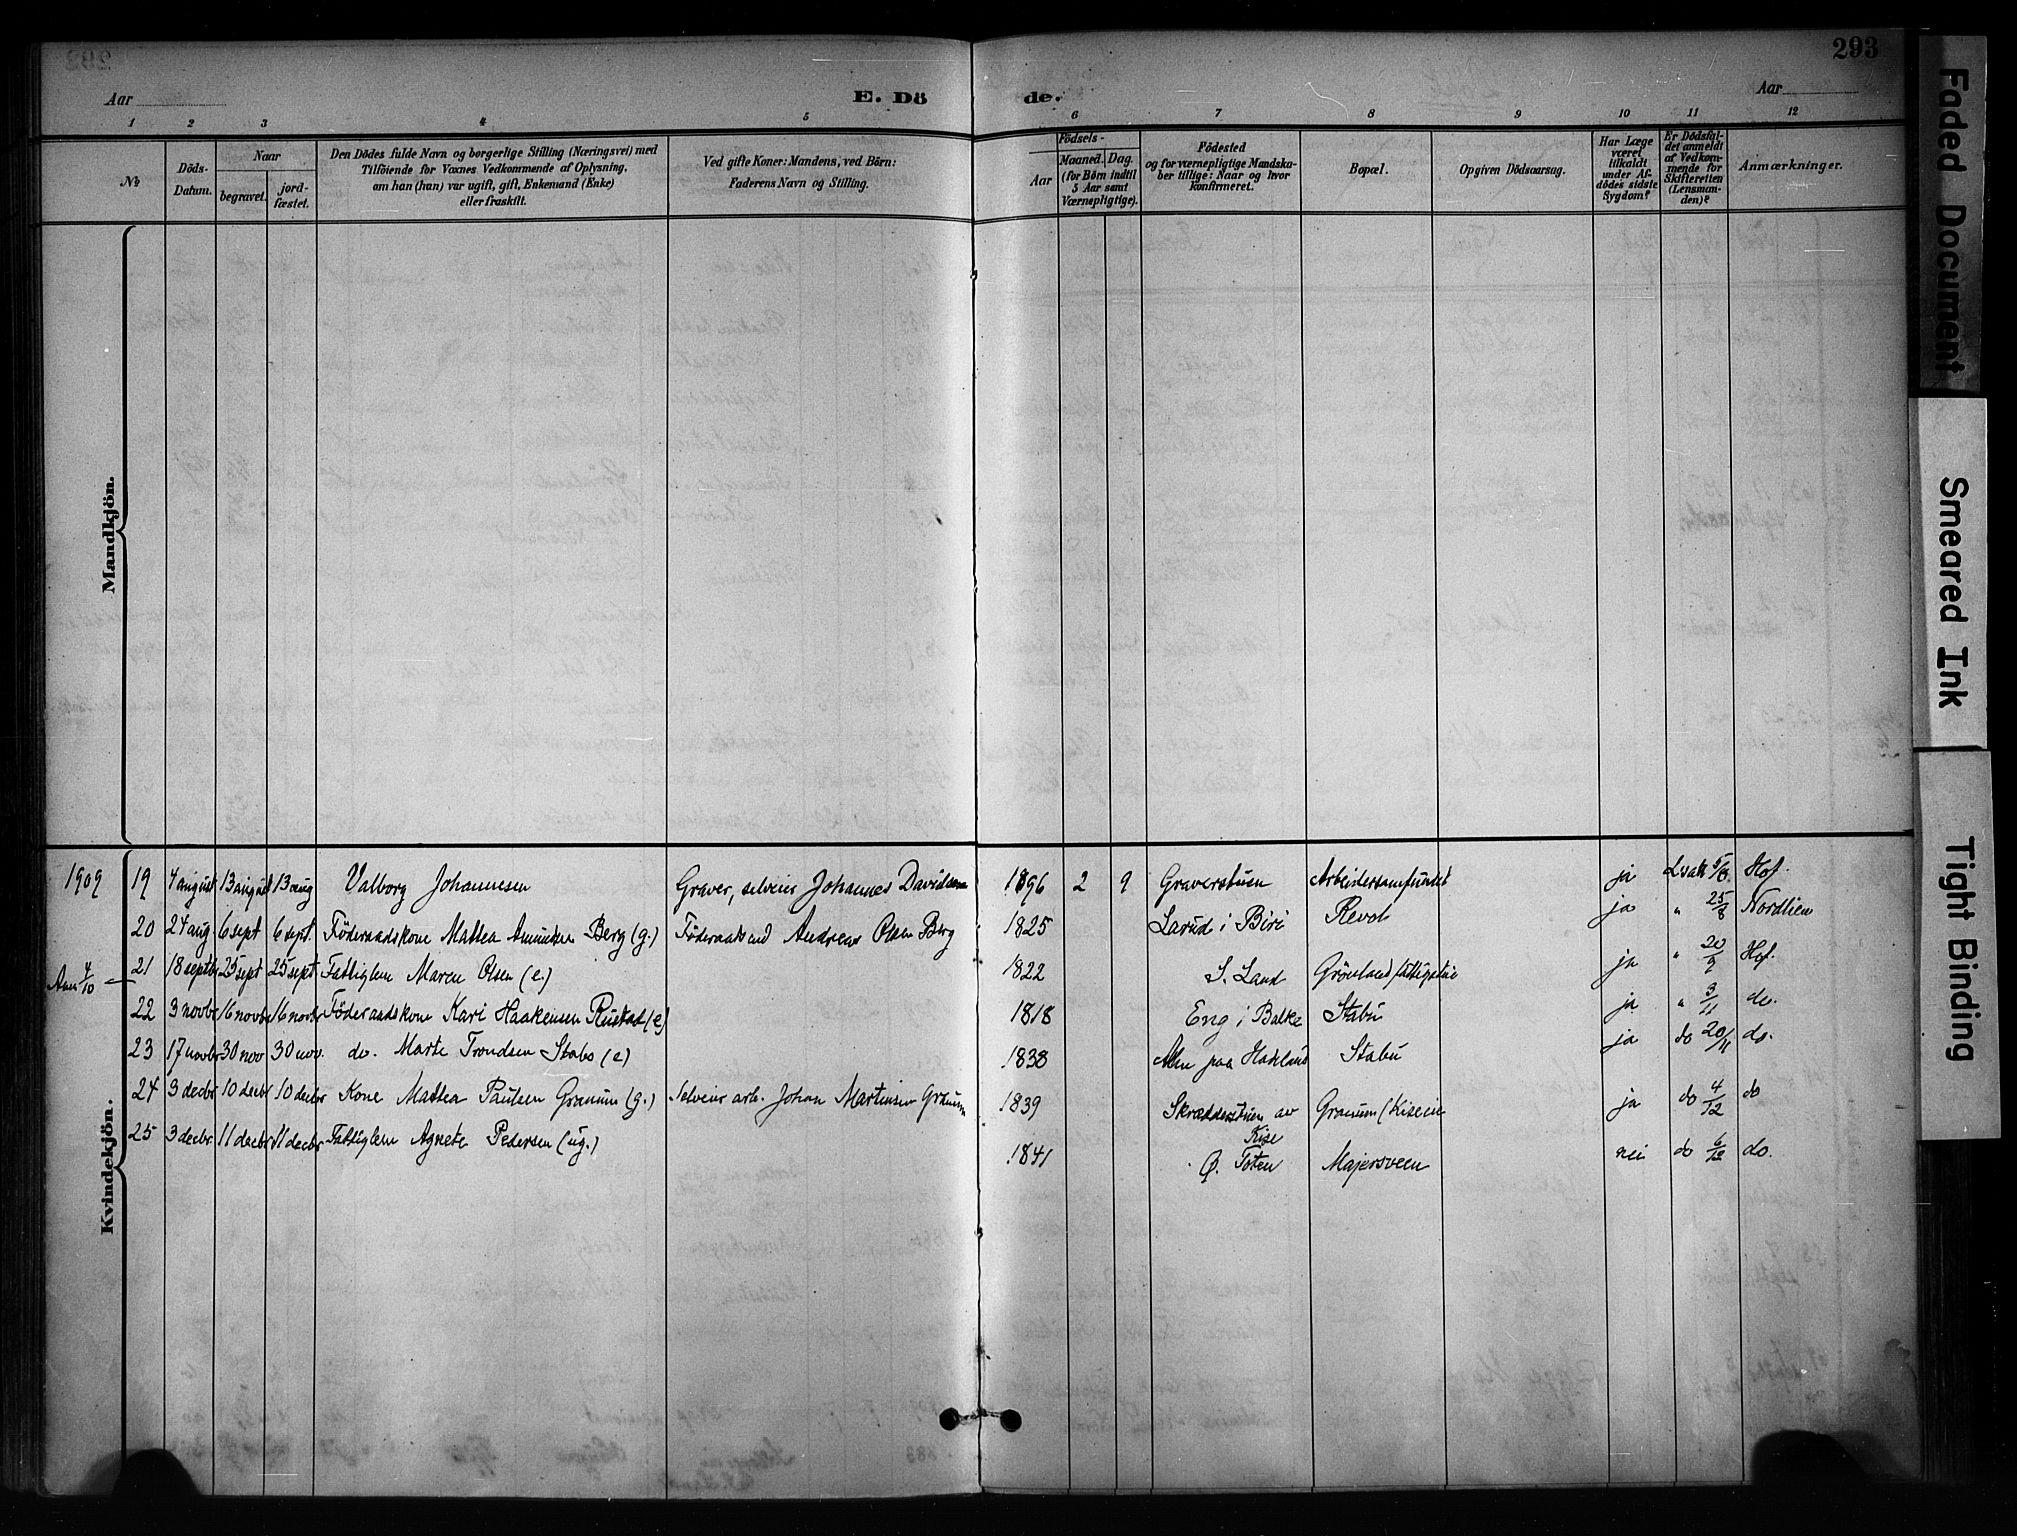 293
Aar
E. Dö de.
Aar
1 2 3 4 5 6 7 8 9 10 11 12
№
Döds-Datum.
Naar
begravet.
jord-fæstet.
Den Dödes fulde Navn og borgerlige Stilling (Næringsvei) med
Tilföiende for Voxnes Vedkommende af Oplysning,
om han (hun) var ugift, gift, Enkemand (Enke)
eller fraskilt.
Ved gifte Koner: Mandens, ved Börn:
Faderens Navn og Stilling.
Födsels-
Aar
Maaned. Dag.
(for Börn indtil
5 Aar samt
Værnepligtige).
Födested
og for værnepligtige Mandska-
ber tillige: Naar og hvor
konfirmeret.
Bopæl.
Opgiven Dödsaarsag.
Har Læge
været
tilkaldt
under Af-
dödes sidste
Sygdom?
Er Dödsfal-
det anmeldt
af Vedkom-
mende for
Skifteretten
(Lensman-
den)?
Anmærkninger.
Mandkjön.
Kvindekjön.
1909 19 4 august 13 august 13 aug Valborg Johannesen Graver, selveier Johannes Davidsen 1896 2 9 Graverstuen Arbeidersamfundet ja 5/8 Hof.
20 24 aug 6 sept 6 sept. Föderaadskone Mattea Amundsen Berg (g.) Föderaadsmd Andreas Olsen Berg 1825 Larud i Biri Revol ja " 25/8 Nordlien
Anm 4/10 21 18 septb 25 sept 25 sept Fattiglem Maren Olsen (e.) 1822 S. Land Grönland fattigstue ja " 20/9 Hof.
22 3 novbr 16 novbr 16 novbr Föderaadskone Kari Haakensen Rustad (e) 1818 Eng i Balke Stabu ja " 3/11 do.
23 17 novbr 30 nov 30 nov. do. Marte Trondsen Stabo (e) 1838 Alm paa Hadeland Stabu ja do 20/11 do.
24 3 decbr 10 decbr 10 decbr Kone Mattea Paulsen Granum (g.) Selveier arb. Johan Martinsen Granum 1839 Skrædderstuen av Kise Granum (Kiseeie ja do 4/12 do
25 3 decbr 11 decbr 11 decbr Fattiglem Agnete Pedersen (ug.) 1841 Ø. Toten Majersveen nei do 6/12 do.
Faded Document
Smeared Ink
Tight Binding